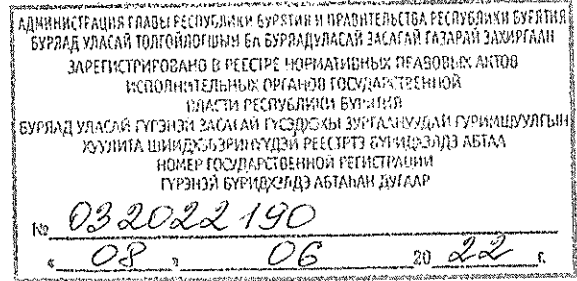 АДМИНИСТРАЦИЯ ГЛАВЫ РЕСПУБЛИКИ БУРЯТИЯ И ПРАВИТЕЛЬСТВА РЕСПУБЛИКИ БУРЯТИЯ
БУРЯАД УЛАСАЙ ТОЛГОЙЛОГШЫН БА БУРЯАД УЛАСАЙ ЗАСАГАЙ ГАЗАРАЙ ЗАХИРГААН
ЗАРЕГИСТРИРОВАНО В РЕЕСТРЕ НОРМАТИВНЫХ ПРАВОВЫХ АКТОВ
ИСПОЛНИТЕЛЬНЫХ ОРГАНОВ ГОСУДАРСТВЕННОЙ
ВЛАСТИ РЕСПУБЛИКИ БУРЯТИЯ
БУРЯАД УЛАСАЙ ГҮРЭНЭЙ ЗАСАГАЙ
РЕЕСТРТЭ БҮРИДХЭЛДЭ АБТАА
НОМЕР ГОСУДАРСТВЕННОЙ РЕГИСТРАЦИИ
ГҮРЭНЭЙ БҮРИДХЭЛДЭ АБТАҺАН ДУГААР
№ 032022190
" 08 " 06 20 22 г.